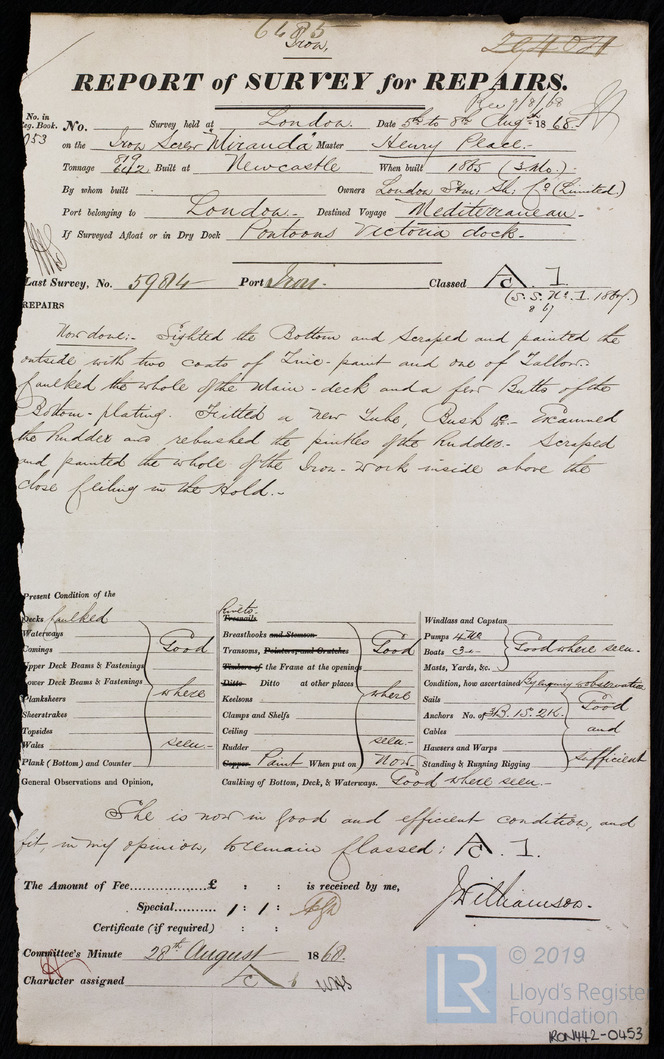 6485
Iron.
29404
REPORT of SURVEY for REPAIRS.
Rec 9/8/68
No. in Reg. Book. 053 No. Survey held at London. Date 5th to 8th Augst 1868.
on the Iron Screw "Miranda" Master Henry Place.
Tonnage 819 642 Built at Newcastle When built 1865 (3 Mo.)
By whom built Owners London Stm: Sh: Co (Limited.)
Port belonging to London. Destined Voyage Mediterranean.
If Surveyed Afloat or in Dry Dock Pontoons Victoria dock.
Last Survey, No. 5984 Port Iron. Classed A 1.
(S.S. No. 1. 1867.)
8 67
REPAIRS
Now done:- Sighted the Bottom and Scraped and painted the
outside with two coats of Zinc-paint and one of Tallow.
Caulked the whole of the Main-deck and a few Butts of the
Bottom-plating. Fitted a new Tube, Bush &c. Examined
the Rudder and rebushed the pintles of the Rudder. Scraped
and painted the whole of the Iron-work inside above the
close Ceiling in the Hold.-
Present Condition of the
Decks Caulked
Waterways
Comings
Upper Deck Beams & Fastenings
Lower Deck Beams & Fastenings
Planksheers
Sheerstrakes
Topsides
Wales
Plank (Bottom) and Counter
Good
where
seen.-
Rivets.
Treenails
Breasthooks and Stemson
Transoms, Pointers, and Crutches
Timbers of the Frame at the openings
Ditto Ditto at other places
Keelsons
Clamps and Shelfs
Ceiling
Rudder
Copper Paint When put on Now
Good
where
seen.-
Windlass and Capstan
Pumps 4 No
Boats 3.-
Masts, Yards, &c.
Good where seen.
Condition, how ascertained By enquiry & observation
Sails
Anchors No. of 3B. 1S. 2K.
Cables
Hawsers and Warps
Standing & Running Rigging
Good
and
Sufficient
General Observations and Opinion, Caulking of Bottom, Deck, & Waterways. Good where seen.-
She is now in good and efficient condition, and
fit, in my opinion, to remain Classed: A 1.
The Amount of Fee............... £ : : is received by me,
Special.......... 1 : 1 :
Certificate (if required) : :
J Williamson.
Committee's Minute 28th August 1868.
Character assigned
© 2019
LR
Lloyd's Register
Foundation
IRON442-0453